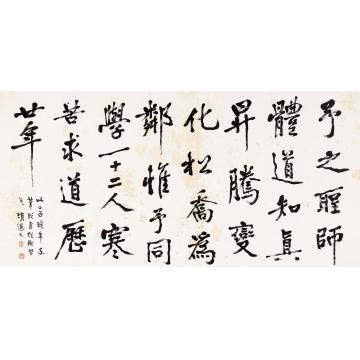 予之聖師
體道知真
昇騰變
化松喬為
鄰惟予同
學一十二人寒
苦求道歷
廿年